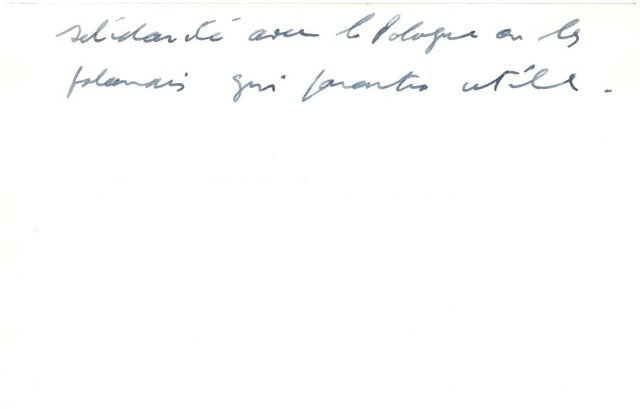 solidarité avec la Pologne ou les
polonais qui paraîtra utile.